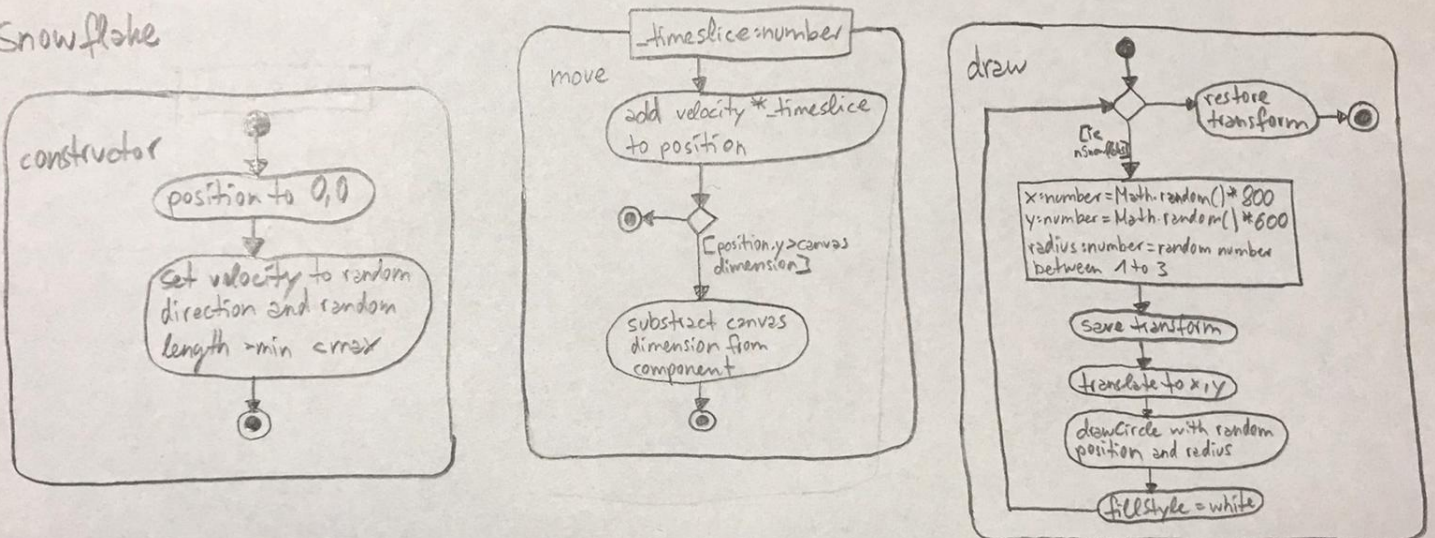 Snowflake
constructor
position to 0,0
set velocity to random
direction and random
length >min <max
_timeslice:number
move
add velocity *_timeslice
to position
[position.y>canvas
dimension]
substract canvas
dimension from
component
draw
restore
transform
x:number=Math.random()*800
y:number=Math.random()*600
radius:number=random number
between 1 to 3
save transform
translate to x,y
drawCircle with random
position and radius
fillStyle=white